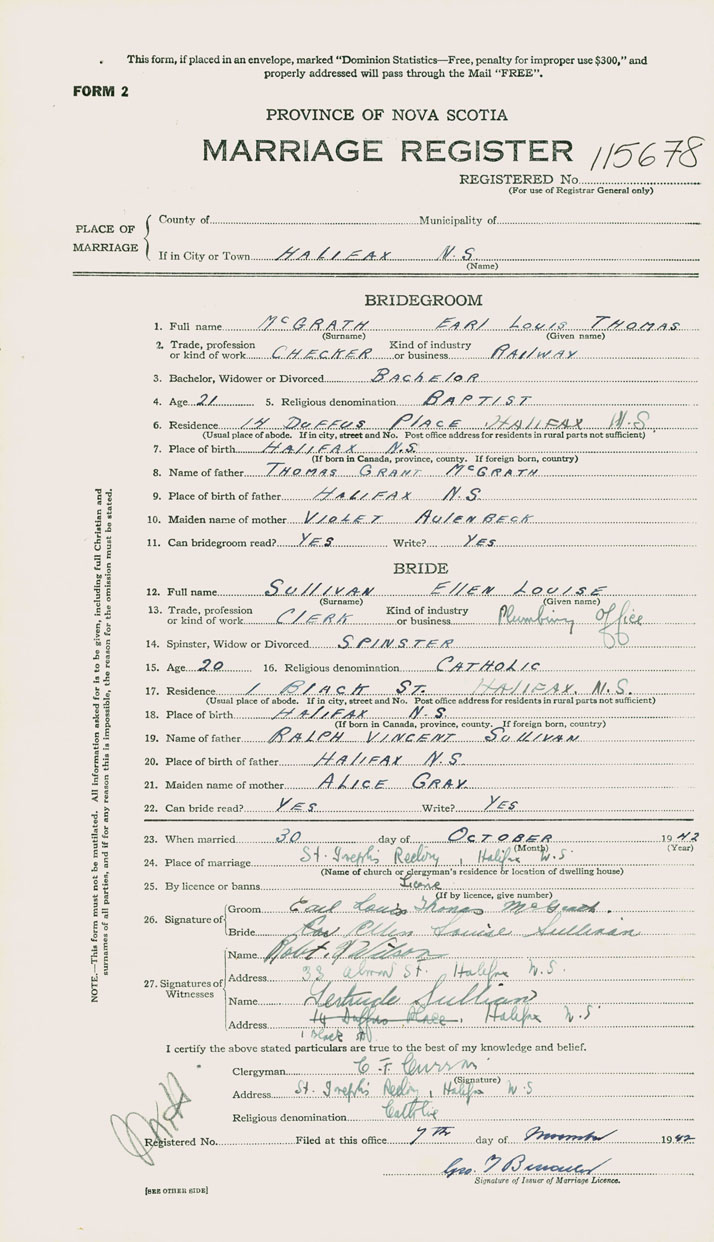 This form, if placed in an envelope, marked "Dominion Statistics—Free, penalty for improper use $300," and
properly addressed will pass through the Mail "FREE".
FORM 2
PROVINCE OF NOVA SCOTIA
MARRIAGE REGISTER 115678
REGISTERED No.
(For use of Registrar General only)
PLACE OF MARRIAGE
County of Municipality of
If in City or Town HALIFAX N.S.
(Name)
BRIDEGROOM
1. Full name McGRATH EARL LOUIS THOMAS
(Surname) (Given name)
2. Trade, profession or kind of work CHECKER Kind of industry or business RAILWAY
3. Bachelor, Widower or Divorced BACHELOR
4. Age 21 5. Religious denomination BAPTIST
6. Residence 14 DUFFUS PLACE HALIFAX N.S.
(Usual place of abode. If in city, street and No. Post office address for residents in rural parts not sufficient)
7. Place of birth HALIFAX N.S.
(If born in Canada, province, county. If foreign born, country)
8. Name of father THOMAS GRANT McGRATH
9. Place of birth of father HALIFAX N.S.
10. Maiden name of mother VIOLET AULENBECK
11. Can bridegroom read? YES Write? YES
BRIDE
12. Full name SULLIVAN ELLEN LOUISE
(Surname) (Given name)
13. Trade, profession or kind of work CLERK Kind of industry or business Plumbing Office
14. Spinster, Widow or Divorced SPINSTER
15. Age 20 16. Religious denomination CATHOLIC
17. Residence 1 BLACK ST. HALIFAX. N.S.
(Usual place of abode. If in city, street and No. Post office address for residents in rural parts not sufficient)
18. Place of birth HALIFAX N.S.
(If born in Canada, province, county. If foreign born, country)
19. Name of father RALPH VINCENT SULLIVAN
20. Place of birth of father HALIFAX N.S.
21. Maiden name of mother ALICE GRAY
22. Can bride read? YES Write? YES
23. When married 30 day of OCTOBER 1942
(Month) (Year)
24. Place of marriage St. Joseph's Rectory, Halifax N.S.
(Name of church or clergyman's residence or location of dwelling house)
25. By licence or banns License
(If by licence, give number)
26. Signature of
Groom Earl Louis Thomas McGrath.
Bride Ellen Louise Sullivan
27. Signatures of Witnesses
Name Robt. Wilson
Address 33 Almon St. Halifax N.S.
Name Gertrude Sullivan
Address 14 Duffus Place, Halifax N.S.
1 Black St.
I certify the above stated particulars are true to the best of my knowledge and belief.
Clergyman C. F. Curran
(Signature)
Address St. Joseph's Rectory, Halifax N.S.
Religious denomination Catholic
Registered No. Filed at this office 7th day of November 1942
Geo. T
Signature of Issuer of Marriage Licence.
[SEE OTHER SIDE]
NOTE.—This form must not be mutilated. All information asked for is to be given, including full Christian and
surnames of all parties, and if for any reason this is impossible, the reason for the omission must be stated.